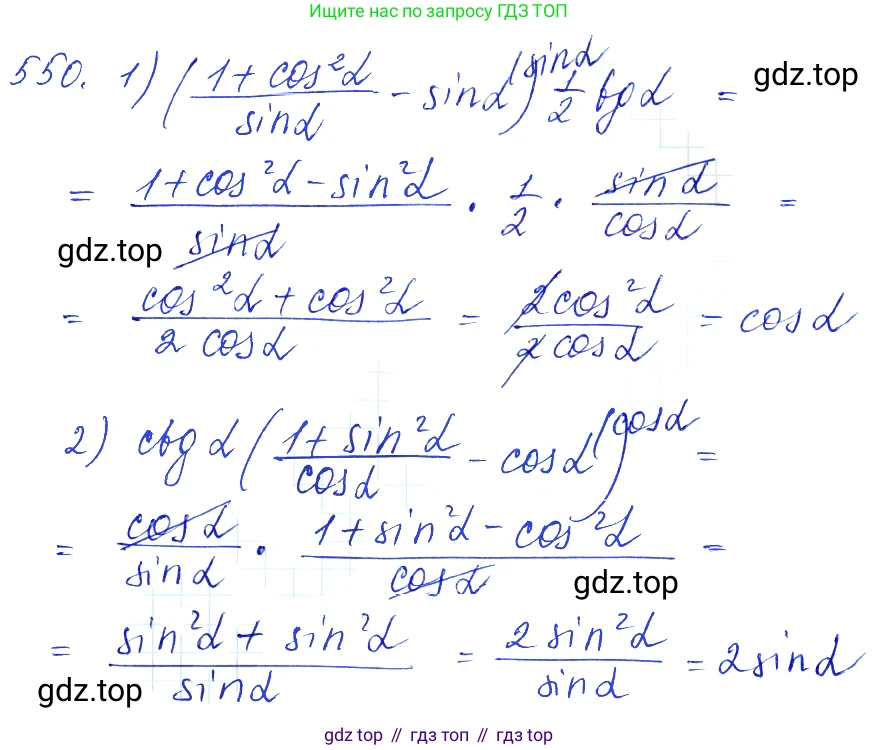 Ищите нас по запросу ГДЗ ТОП
550. 1) ((1 + cos²α)/sinα - sinα^(sinα) ) 1/2 tgα =
gdz.top
= (1 + cos²α - sin²α)/sinα · 1/2 · sinα/cosα =
gdz.top
= (cos²α + cos²α)/(2 cosα) = 2cos²α/(2cosα) = cosα
2) ctgα ((1 + sin²α)/cosα - cosα^(cosα) ) =
= cosα/sinα · (1 + sin²α - cos²α)/cosα =
gdz.top
= (sin²α + sin²α)/sinα = 2 sin²α/sinα = 2sinα
gdz.top
gdz top // гдз топ // gdz top